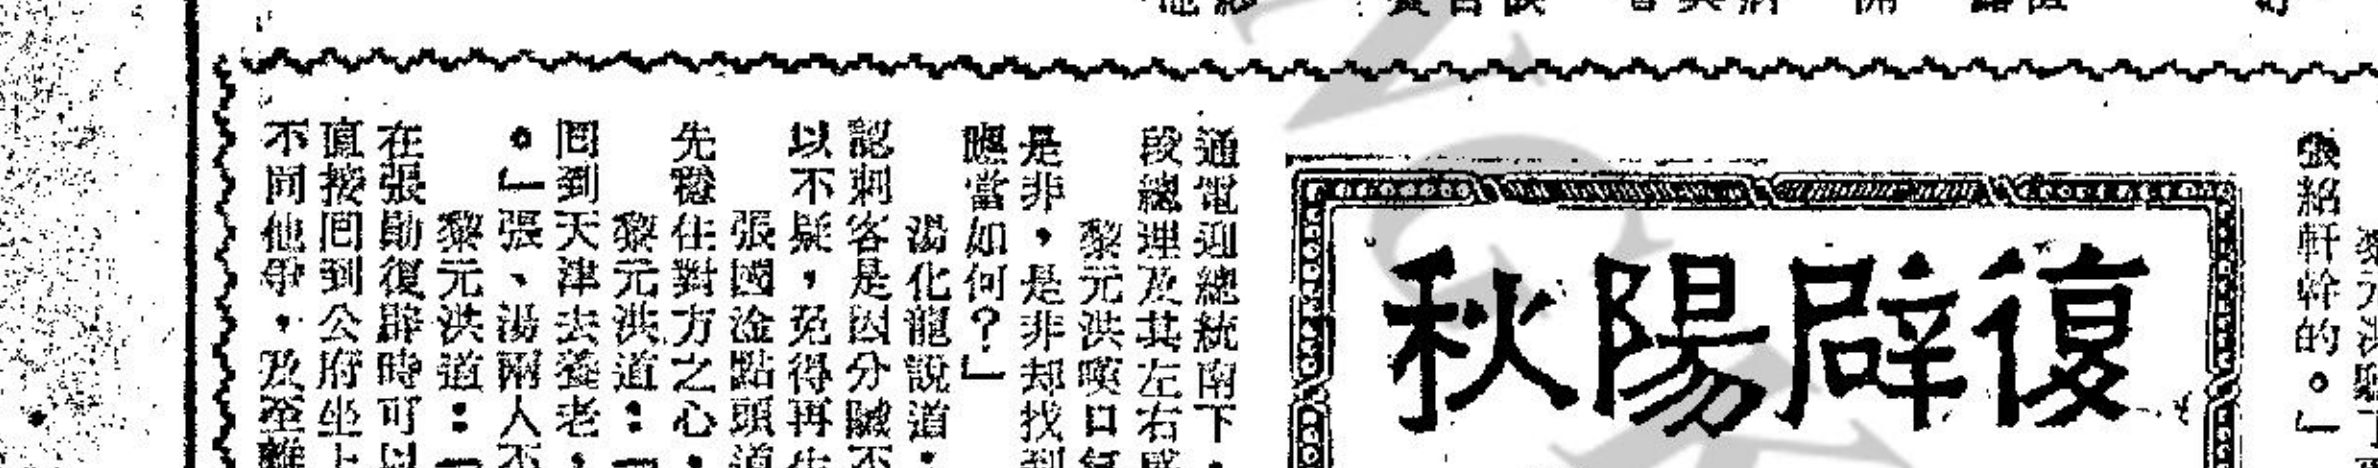 張紹軒幹的。」
復辟陽秋
通電迎總統南下，
段總理及其左右
黎元洪嘆口氣
是非，是非却找到
應當如何？」
湯化龍說道：
認刺客是因分贓不
以不疑，免得再生
張國淦點頭道
先穩住對方之心，
黎元洪道：「
回到天津去養老，
。」張、湯兩人不
黎元洪道：「
在張勛復辟時可以
直接回到公府坐上
不同他爭，及至